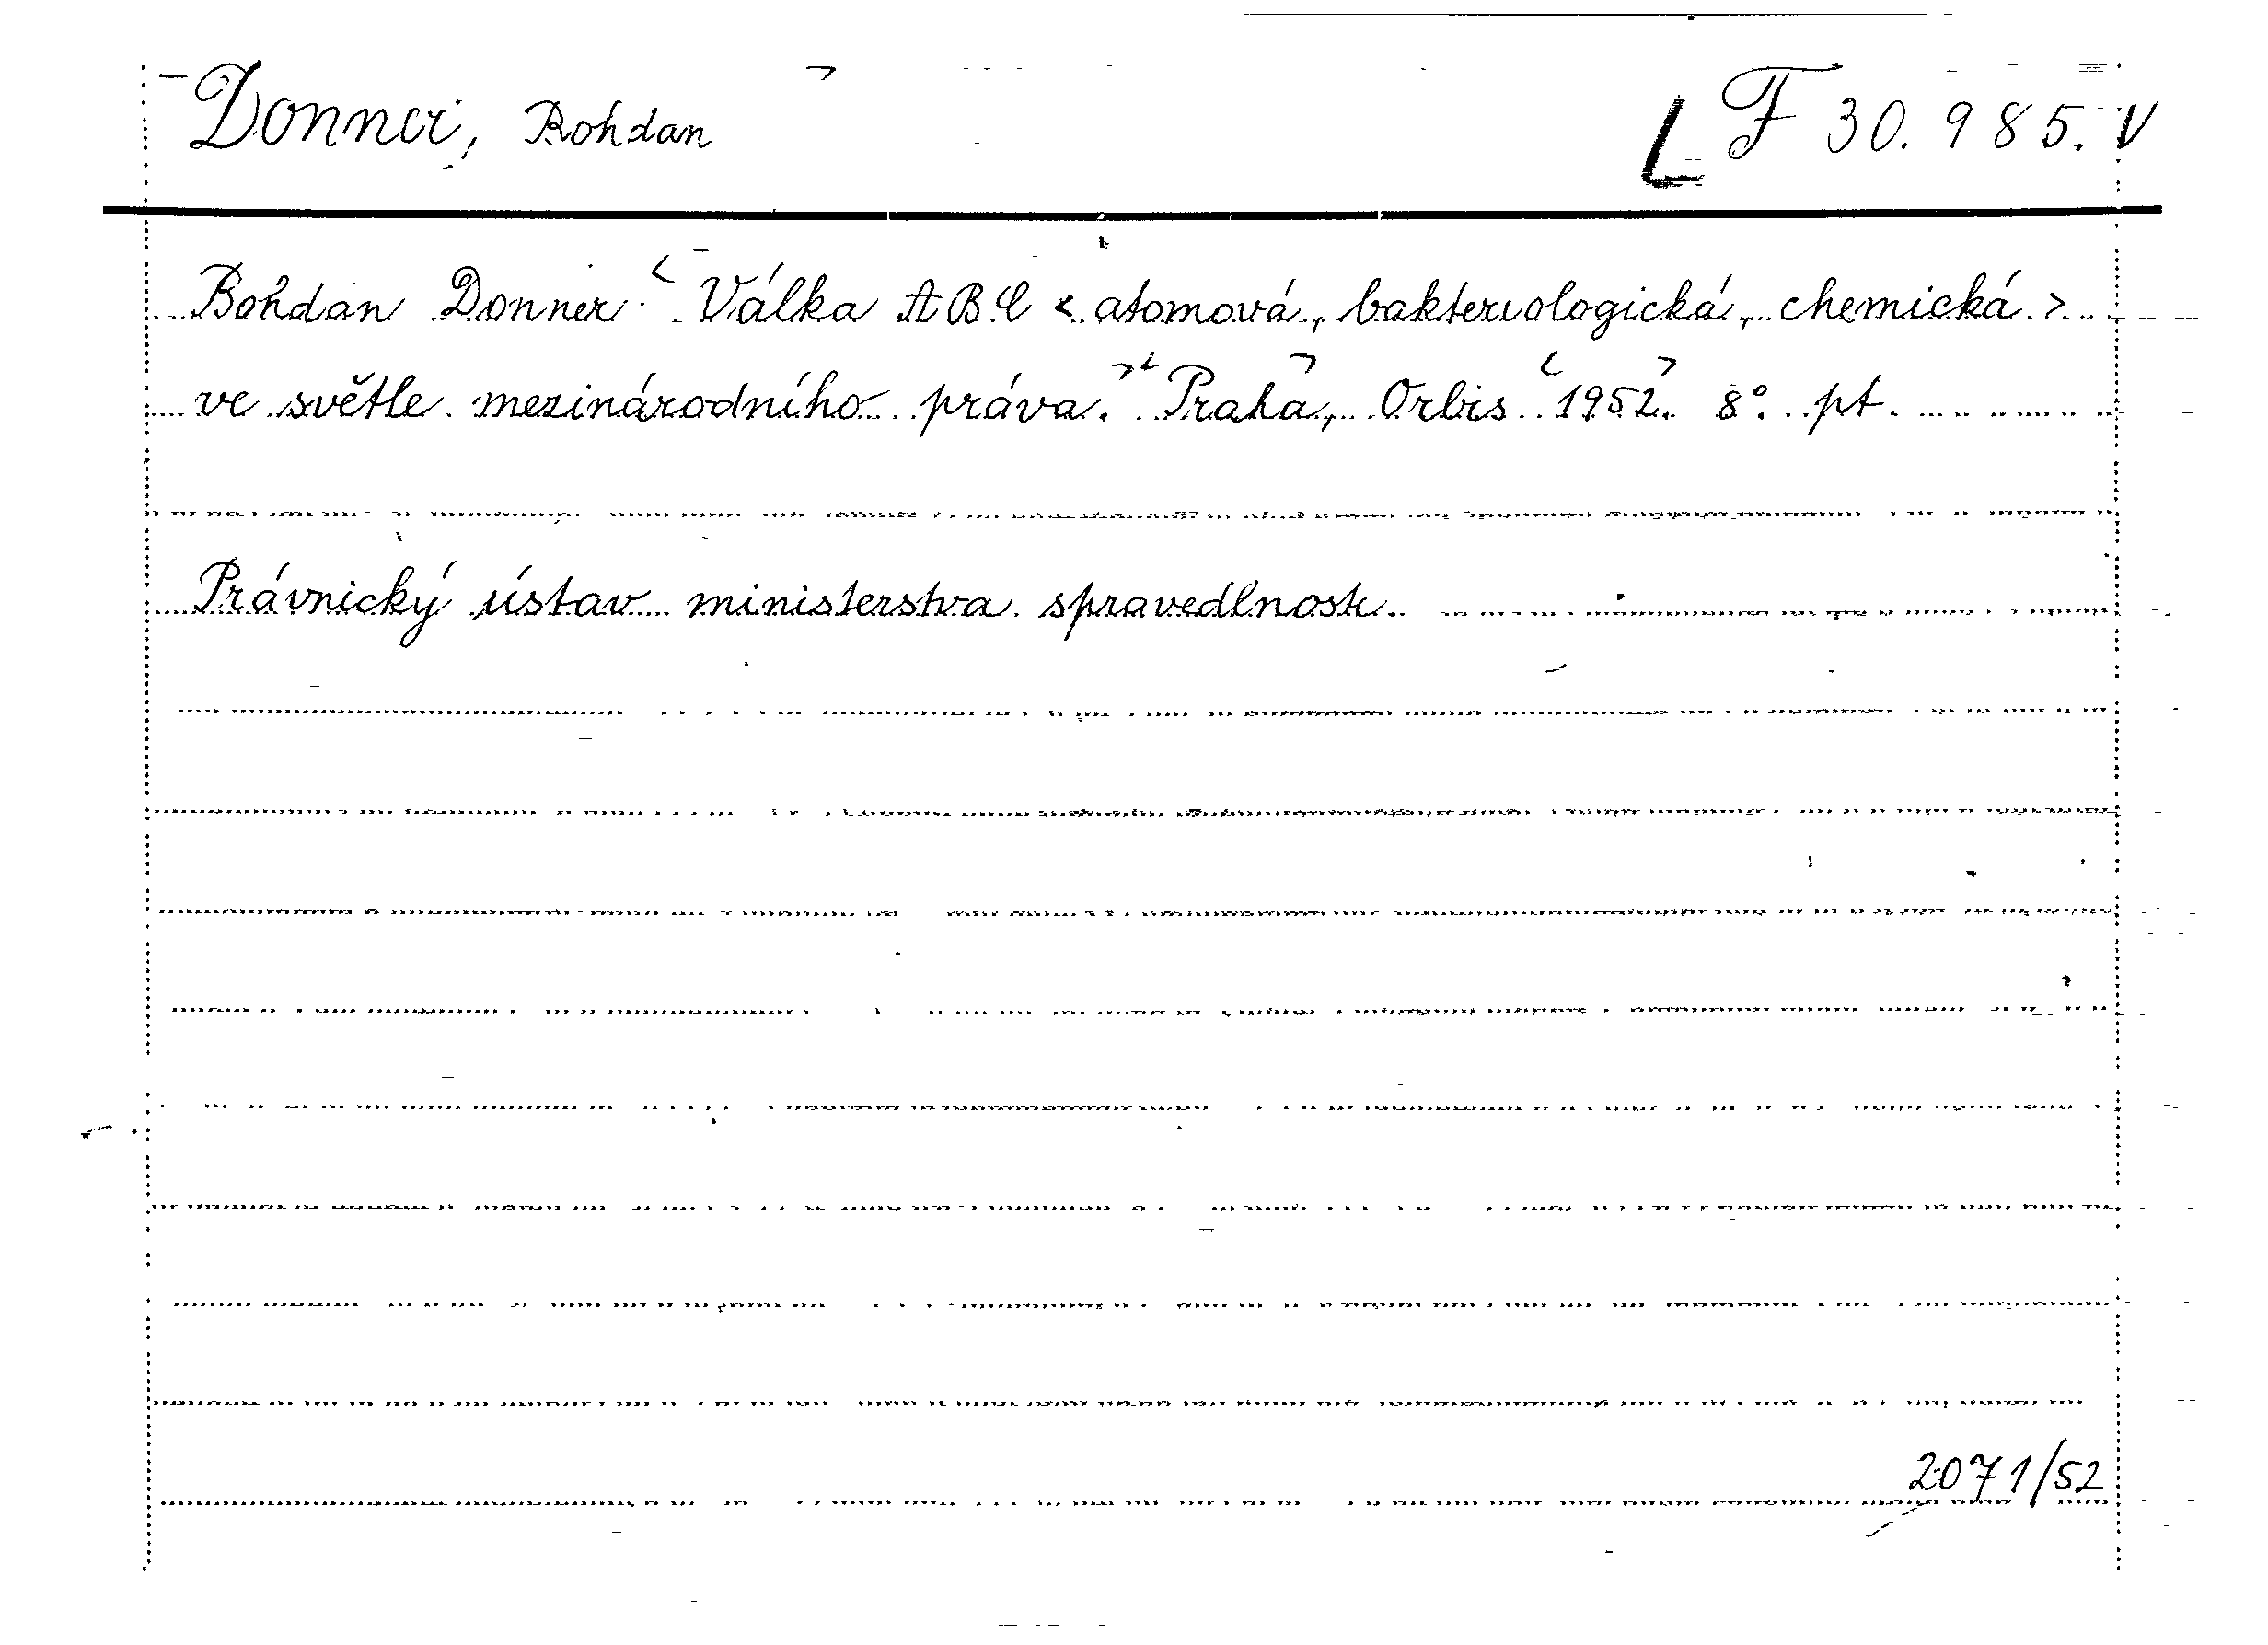 Donner, Bohdan L F 30.985. V
Bohdan Donner: Válka ABC <atomová, bakteriologická, chemická>
ve světle mezinárodního práva. Praha, Orbis 1952. 8°. pt.
Právnický ústav ministerstva spravedlnosti.
2071/52